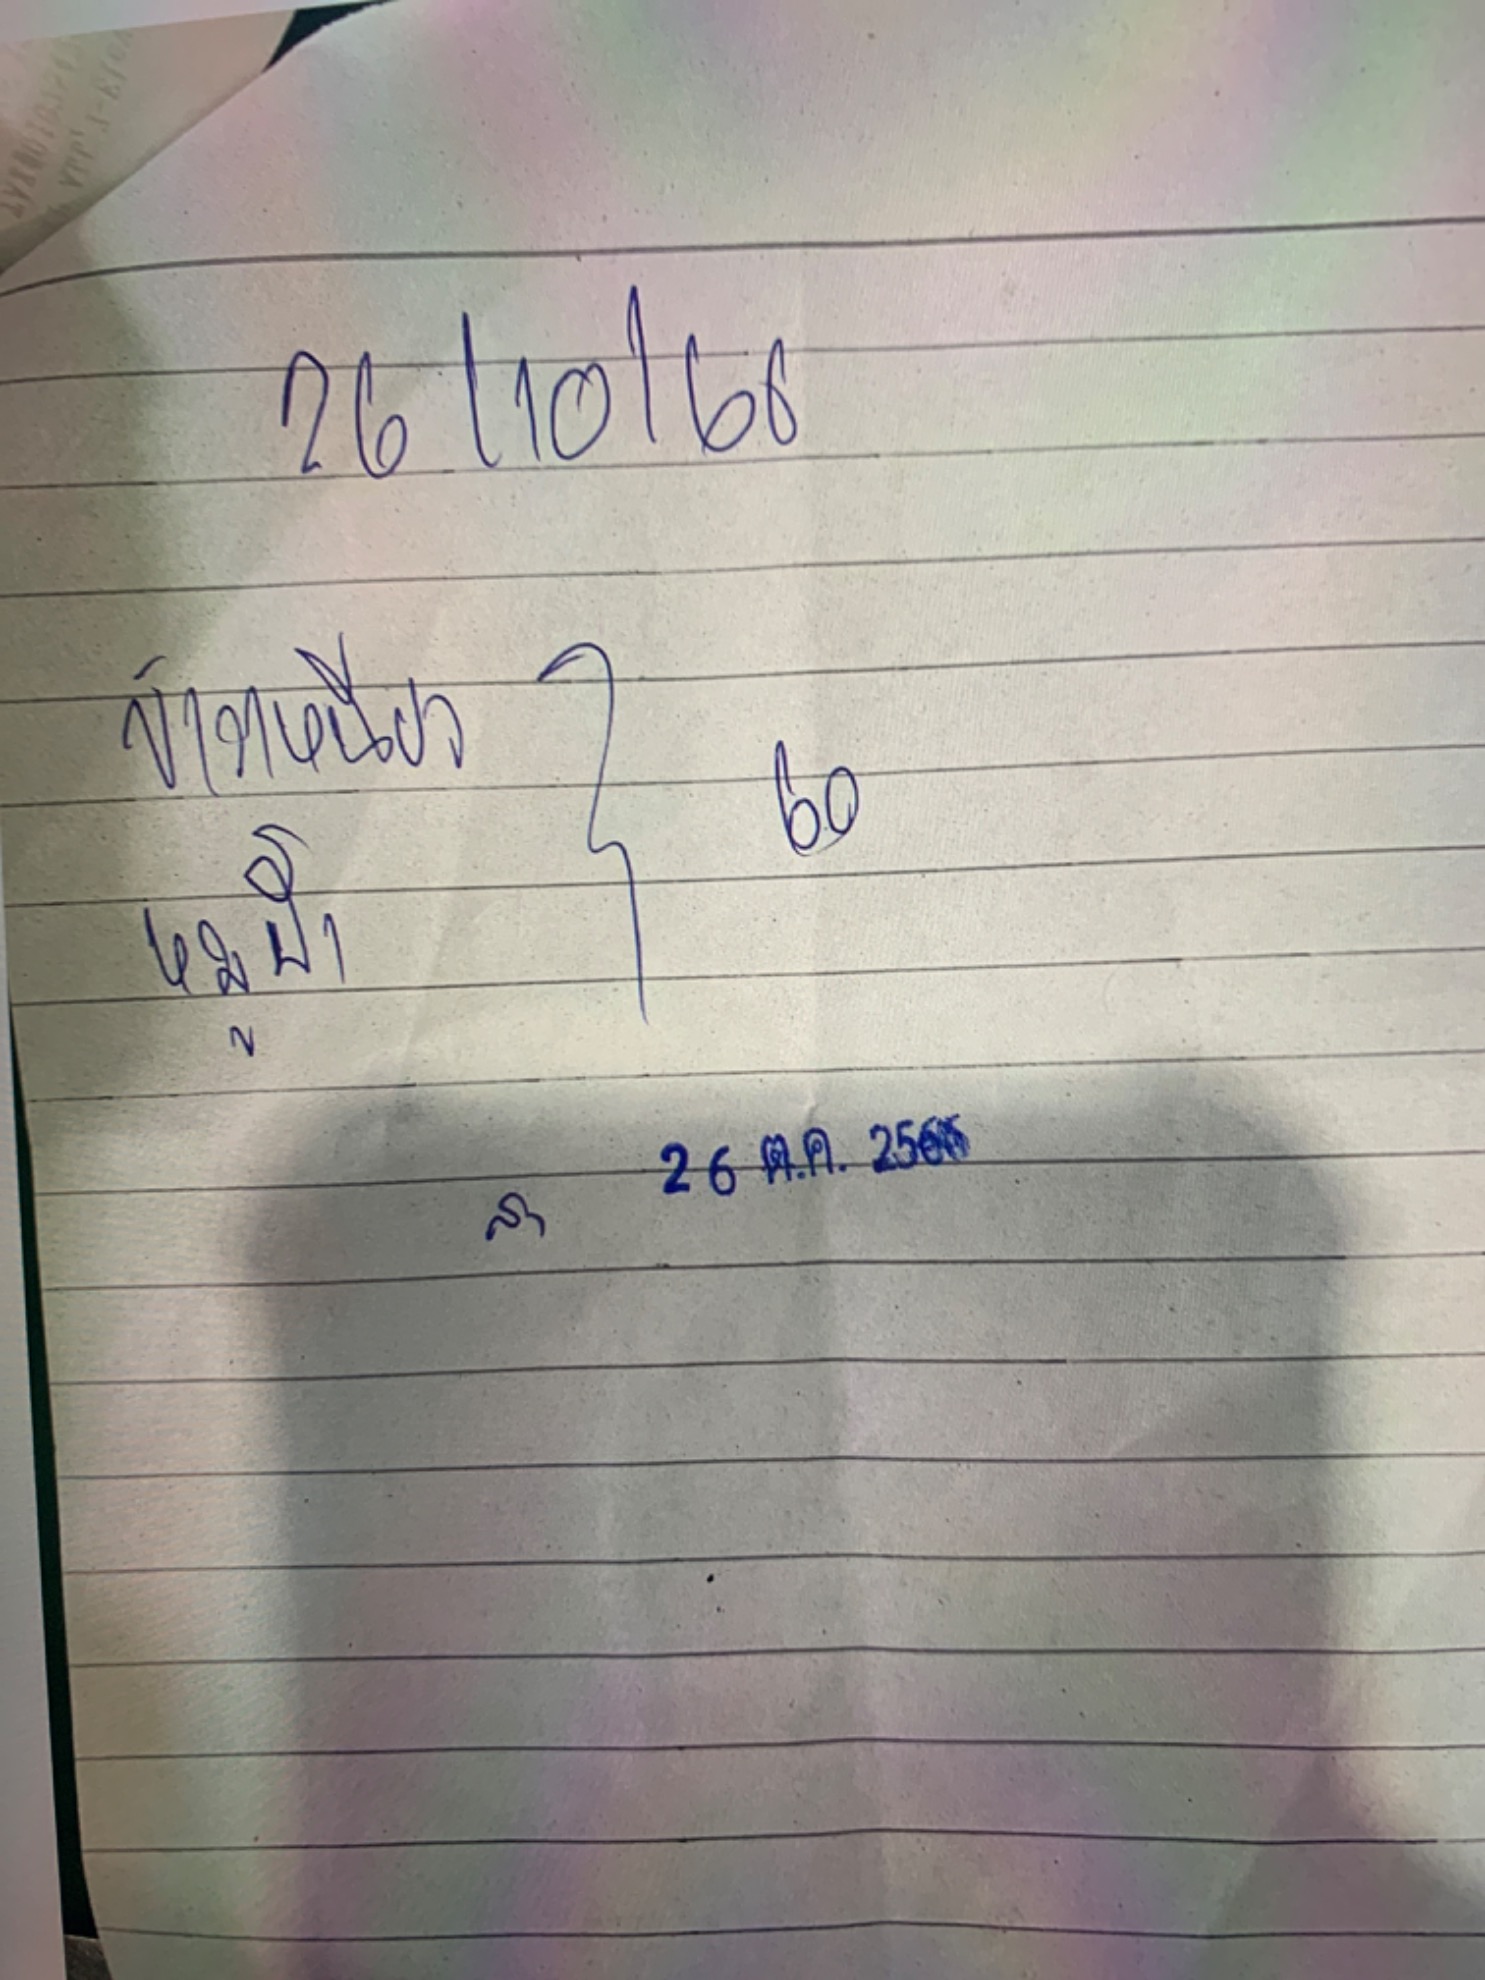 26/10/66
ข้าวเหนียว
60
หมูปิ้ง
26 ต.ค. 2566